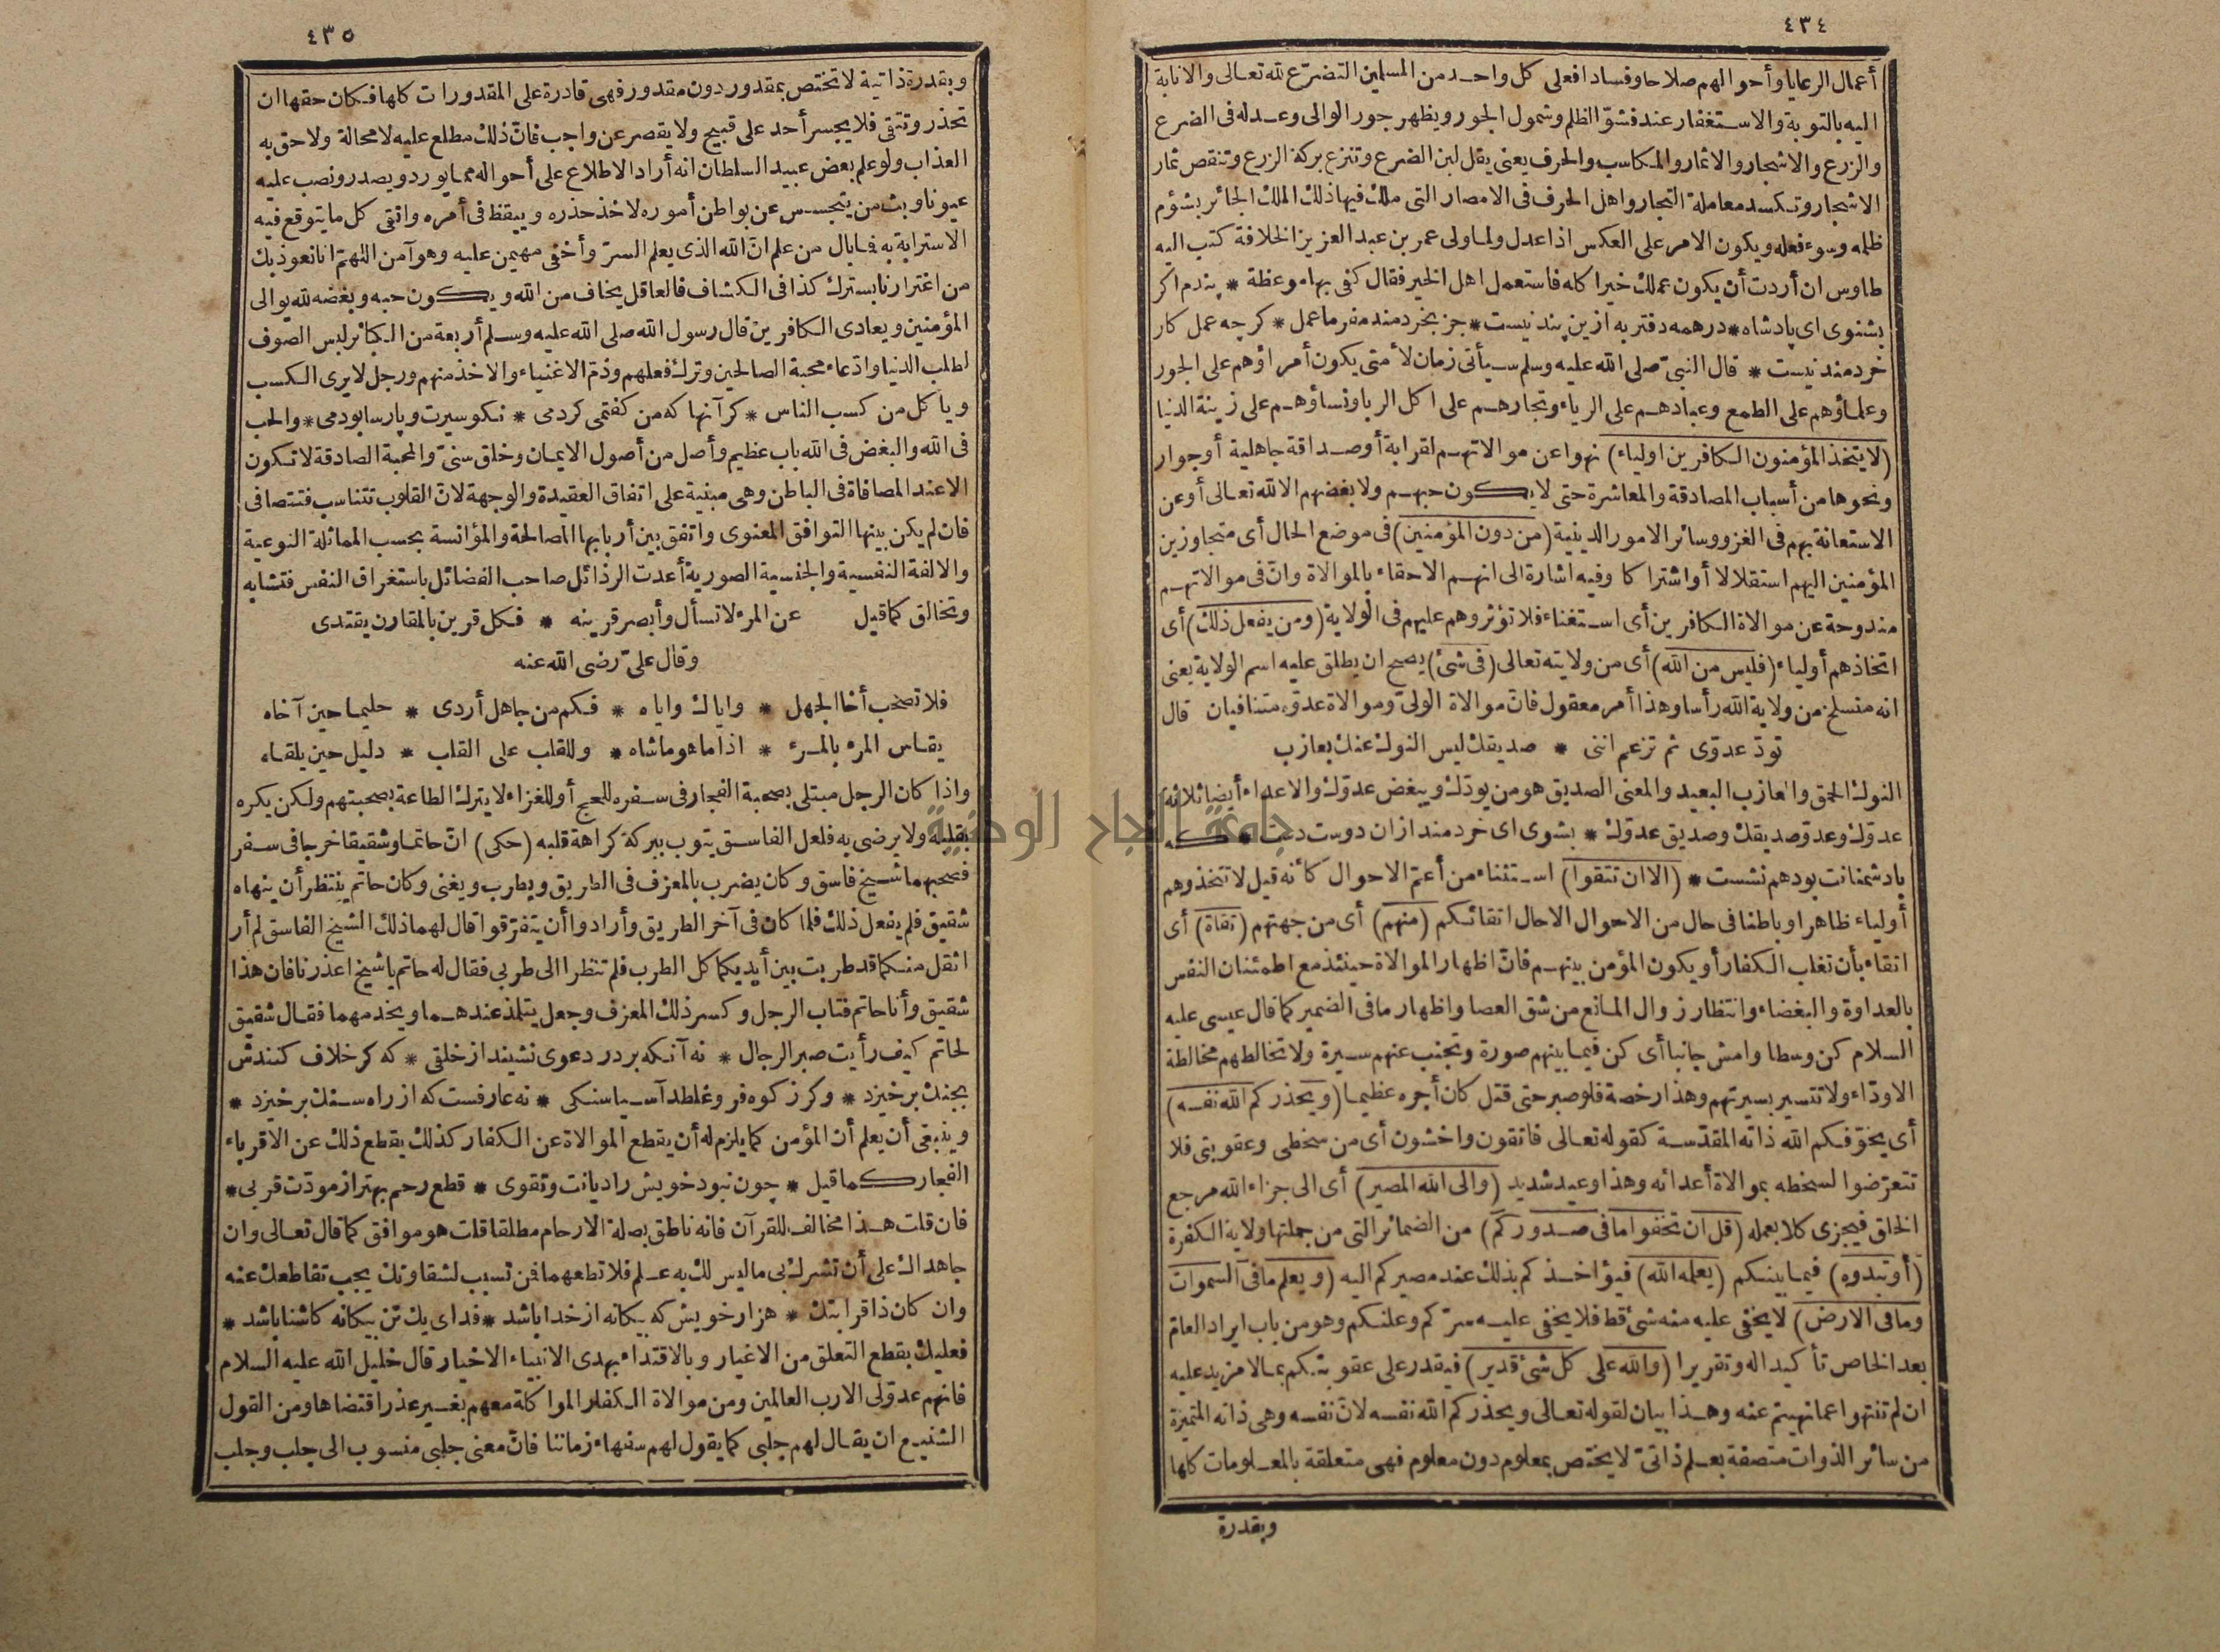 ٤٣٤
أعمال الرعايا وأحوالهم صلاحا وفسادا فعلى كل واحد من المسلمين التضرّع لله تعالى والانابة
اليه بالتوبة والاستغفار عند فشوّ الظلم وشمول الجور ويظهر جور الوالى وعدله فى الضرع
والزرع والاشجار والاثمار والمكاسب والحرف يعنى يقل لبن الضرع وتنزع بركة الزرع وتنقص ثمار
الاشجار وتكسد معاملة التجار واهل الحرف فى الامصار التى ملك فيها ذلك الملك الجائر بشؤم
ظلمه وسوء فعله ويكون الامر على العكس اذا عدل ولما ولى عمر بن عبد العزيز الخلافة كتب اليه
طاوس ان أردت أن يكون عملك خيرا كله فاستعمل اهل الخير فقال كفى بها موعظة * پندم اكر
بشنوى اى پادشاه * در همه دفتر به ازين پند نيست * جز بخردمند مفرما عمل * كرچه عمل كار
خردمند نيست * قال النبىّ صلى الله عليه وسلم سيأتى زمان لأمتى يكون أمراؤهم على الجور
وعلماؤهم على الطمع وعبادهم على الرياء وتجارهم على اكل الربا ونساؤهم على زينة الدنيا
(لا يتخذ المؤمنون الكافرين اولياء) نهوا عن موالاتهم لقرابة أو صداقة جاهلية أوجوار
ونحوها من أسباب المصادقة والمعاشرة حتى لا يكون حبهم ولا بغضهم الا لله تعالى أوعن
الاستعانة بهم فى الغزو وسائر الامور الدينية (من دون المؤمنين) فى موضع الحال أى متجاوزين
المؤمنين اليهم استقلالا أو اشتراكا وفيه اشارة الى انهم الاحقاء بالموالاة وانّ فى موالاتهم
مندوحة عن موالاة الكافرين أى استغناء فلا تؤثروهم عليهم فى الولاية (ومن يفعل ذلك) أى
اتخاذهم أولياء (فليس من الله) أى من ولايته تعالى (فى شئ) يصح ان يطلق عليه اسم الولاية يعنى
انه منسلخ من ولاية الله رأسا وهذا أمر معقول فانّ موالاة الولىّ وموالاة عدوّه متنافيان قال
تودّ عدوّى ثم تزعم اننى * صديقك ليس النوك عنك بعازب
النوك الحمق والعازب البعيد والمعنى الصديق هو من يودّك ويبغض عدوّك والاعداء أيضا ثلاثة
عدوّك وعدوّ صديقك وصديق عدوّك * بشوى اى خردمند ازان دوست دست * كه
بادشمنانت بود هم نشست * (الا ان تتقوا) استثناء من أعمّ الاحوال كأنه قيل لا تتخذوهم
أولياء ظاهرا وباطنا فى حال من الاحوال الا حال اتقائكم (منهم) أى من جهتهم (تقاة) أى
اتقاء بأن تغلب الكفار أو يكون المؤمن بينهم فانّ اظهار الموالاة حينئذ مع اطمئنان النفس
بالعداوة والبغضاء وانتظار زوال المانع من شق العصا واظهار ما فى الضمير كما قال عيسى عليه
السلام كن وسطا وامش جانبا أى كن فيما بينهم صورة وتجنب عنهم سيرة ولا تخالطهم مخالطة
الاودّاء ولا تتسير بسيرتهم وهذا رخصة فلو صبر حتى قتل كان أجره عظيما (ويحذركم الله نفسه)
أى يخوّفكم الله ذاته المقدّسة كقوله تعالى فاتقون واخشون أى من سخطى وعقوبتى فلا
تتعرّضوا لسخطه بموالاة أعدائه وهذا وعيد شديد (والى الله المصير) أى الى جزاء الله مرجع
الخلق فيجزى كلا بعمله (قل ان تخفوا ما فى صدوركم) من الضمائر التى من جملتها ولاية الكفرة
(أو تبدوه) فيما بينكم (يعلمه الله) فيؤاخذكم بذلك عند مصيركم اليه (ويعلم ما فى السموات
وما فى الارض) لا يخفى عليه منه شئ قط فلا يخفى عليه سرّكم وعلنكم وهو من باب ايراد العامّ
بعد الخاص تأكيدا له وتقريرا (والله على كل شئ قدير) فيقدر على عقوبتكم بما لا مزيد عليه
ان لم تنتهوا عما نهيتم عنه وهذا بيان لقوله تعالى ويحذركم الله نفسه لانّ نفسه وهى ذاته المتميزة
من سائر الذوات متصفة بعلم ذاتىّ لا يختص بمعلوم دون معلوم فهى متعلقة بالمعلومات كلها
وبقدرة
٤٣٥
وبقدرة ذاتية لا تختص بمقدور دون مقدور فهى قادرة على المقدورات كلها فكان حقها ان
تحذر وتتقى فلا يجسر أحد على قبيح ولا يقصر عن واجب فانّ ذلك مطلع عليه لا محالة ولاحق به
العذاب ولو علم بعض عبيد السلطان انه أراد الاطلاع على أحواله مما يورد ويصدر ونصب عليه
عيونا وبث من يتجسس عن بواطن أموره لاخذ حذره وتيقظ فى أمره واتقى كل ما يتوقع فيه
الاسترابة به فما بال من علم انّ الله الذى يعلم السرّ وأخفى مهيمن عليه وهو آمن اللهمّ انا نعوذ بك
من اغترارنا بسترك كذا فى الكشاف فالعاقل يخاف من الله ويكون حبه وبغضه لله يوالى
المؤمنين ويعادى الكافرين قال رسول الله صلى الله عليه وسلم أربعة من الكبائر لبس الصوف
لطلب الدنيا وادّعاء محبة الصالحين وترك فعلهم وذمّ الاغنياء والاخذ منهم ورجل لا يرى الكسب
ويأكل من كسب الناس * كر آنها كه من كفتمى كردمى * نكو سيرت و پارسا بودمى * والحب
فى الله والبغض فى الله باب عظيم وأصل من أصول الايمان وخلق سنىّ والمحبة الصادقة لا تكون
الا عند المصافاة فى الباطن وهى مبنية على اتفاق العقيدة والوجهة لانّ القلوب تتناسب فتتصافى
فان لم يكن بينها التوافق المعنوى واتفق بين أربابها المصالحة والمؤانسة بحسب المماثلة النوعية
والالفة النفسية والجنسية الصورية أعدت الرذائل صاحب الفضائل باستغراق النفس فتشابه
وتخالق كما قيل عن المرء لا تسأل وأبصر قرينه * فكل قرين بالمقارن يقتدى
وقال علىّ رضى الله عنه
فلا تصحب أخا الجهل * واياك واياه * فكم من جاهل أردى * حليما حين آخاه
يقاس المرء بالمرء * اذا ما هو ماشاه * وللقلب على القلب * دليل حين يلقاه
واذا كان الرجل مبتلى بصحبة الفجار فى سفره للحج أو للغزاء لا يترك الطاعة بصحبتهم ولكن يكره
بقلبه ولا يرضى به فلعل الفاسق يتوب ببركة كراهة قلبه (حكى) انّ حاتما وشقيقا خرجا فى سفر
فصحبهما شيخ فاسق وكان يضرب بالمعزف فى الطريق ويطرب ويغنى وكان حاتم ينتظر أن ينهاه
شقيق فلم يفعل ذلك فلما كان فى آخر الطريق وأرادوا أن يتفرّقوا قال لهما ذلك الشيخ الفاسق لم أر
اثقل منكما قد طربت بين أيديكما كل الطرب فلم تنظرا الى طربى فقال له حاتم يا شيخ اعذرنا فان هذا
شقيق وأنا حاتم فتاب الرجل وكسر ذلك المعزف وجعل يتلمذ عندهما ويخدمهما فقال شقيق
لحاتم كيف رأيت صبر الرجال * نه آنكه بر در دعوى نشيند از خلقى * كه كر خلاف كنندش
بجنك برخيزد * وكر ز كوه فرو غلطد آسيا سنكى * نه عارفست كه از راه سنك برخيزد *
وينبغى أن يعلم أن المؤمن كما يلزم له أن يقطع الموالاة عن الكفار كذلك يقطع ذلك عن الاقرباء
الفجار كما قيل * چون نبود خويش را ديانت وتقوى * قطع رحم بهتر از مودّت قربى *
فان قلت هذا مخالف للقرآن فانه ناطق بصلة الارحام مطلقا قلت هو موافق كما قال تعالى وان
جاهداك على أن تشرك بى ما ليس لك به علم فلا تطعهما فمن تسبب لشقاوتك يجب تقاطعك عنه
وان كان ذا قرابتك * هزار خويش كه بيكانه از خدا باشد * فداى يك تن بيكانه كاشنا باشد *
فعليك بقطع التعلق من الاغيار وبالاقتداء بهدى الانبياء الاخيار قال خليل الله عليه السلام
فانهم عدوّلى الا رب العالمين ومن موالاة الكفار المواكلة معهم بغير عذر اقتضاها ومن القول
الشنيع ان يقال لهم جلبى كما يقول لهم سفهاء زماننا فانّ معنى جلبى منسوب الى جلب وجلب
جامعة النجاح الوطنية